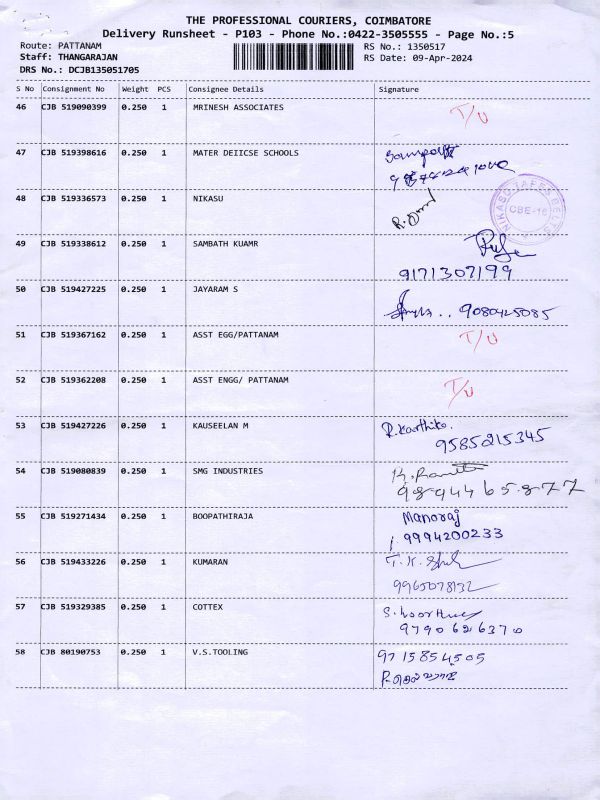 THE PROFESSIONAL COURIERS, COIMBATORE
Delivery Runsheet - P103 - Phone No.:0422-3505555 - Page No.:5
Route: PATTANAM RS No.: 1350517
Staff: THANGARAJAN RS Date: 09-Apr-2024
DRS No.: DCJB135051705
S No Consignment No Weight PCS Consignee Details Signature
46 CJB 519090399 0.250 1 MRINESH ASSOCIATES T/U
47 CJB 519398616 0.250 1 MATER DEIICSE SCHOOLS
48 CJB 519336573 0.250 1 NIKASU
CBE-16
49 CJB 519338612 0.250 1 SAMBATH KUAMR
9171307199
50 CJB 519427225 0.250 1 JAYARAM S
9080425085
51 CJB 519367162 0.250 1 ASST EGG/PATTANAM T/U
52 CJB 519362208 0.250 1 ASST ENGG/ PATTANAM T/U
53 CJB 519427226 0.250 1 KAUSEELAN M R.Karthika.
9585215345
54 CJB 519080839 0.250 1 SMG INDUSTRIES
989446 5877
55 CJB 519271434 0.250 1 BOOPATHIRAJA Manoraj
9994200233
56 CJB 519433226 0.250 1 KUMARAN
9965078132
57 CJB 519329385 0.250 1 COTTEX
9790626370
58 CJB 80190753 0.250 1 V.S.TOOLING 9715854505